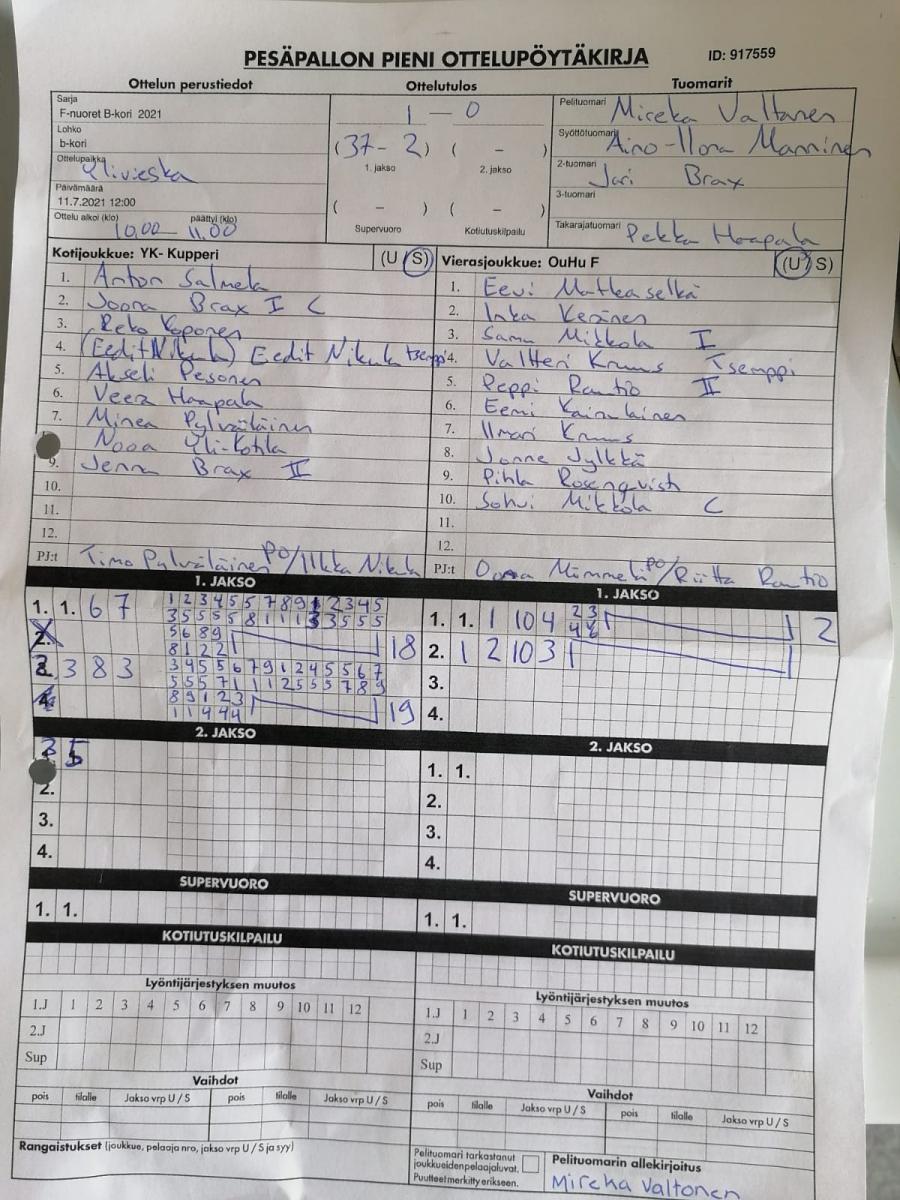 PESÄPALLON PIENI OTTELUPÖYTÄKIRJA
ID: 917559
Ottelun perustiedot
Ottelutulos
Tuomarit
Sarja
F-nuoret B-kori 2021
Lohko
b-kori
Ottelupaikka
Ylivieska
Päivämäärä
11.7.2021 12:00
Ottelu alkoi (klo) päättyi (klo)
10.00 — 11.00
1 — 0
(37 - 2) ( - )
1. jakso 2. jakso
( - ) ( - )
Supervuoro Kotiutuskilpailu
Pelituomari Mireka Valtonen
Syöttötuomari Aino-Ilona Manninen
2-tuomari Jari Brax
3-tuomari
Takarajatuomari Pekka Haapala
Kotijoukkue: YK- Kupperi (U S)
1. Anton Salmela
2. Joona Brax I C
3. Reko Koponen
4. (Eedit Nikula) Eedit Nikula tsemppi
5. Akseli Pesonen
6. Veera Haapala
7. Minea Pylväläinen
Nooa Yli-Kotila
9. Jenna Brax II
10.
11.
12.
PJ:t Timo Pylväläinen PO/Ilkka Nikula
Vierasjoukkue: OuHu F (U S)
1. Eevi Matkaselkä
2. Inka Keränen
3. Samu Mikkola I
4. Valtteri Kruus Tsemppi
5. Peppi Rautio II
6. Eemi Kainulainen
7. Ilmari Kruus
8. Jonne Jylkkä
9. Pihla Rosenqvist
10. Sohvi Mikkola C
11.
12.
PJ:t PO/Riitta Rautio
1. JAKSO
1. 1. 6 7 1 2 3 4 5 5 7 8 9 1 2 3 4 5
3 5 5 5 5 8 1 1 1 3 3 5 5 5
2. 5 6 8 9
8 1 2 2 18
3. 3 8 3 3 4 5 5 6 7 9 1 2 4 5 5 6 7
5 5 5 7 1 1 1 2 5 5 5 7 8 9
4. 8 9 1 2 3
1 1 4 4 4 19
1. JAKSO
1. 1. 1 10 4 2 3
2
2. 1 2 10 3
3.
4.
2. JAKSO
3 5
2.
3.
4.
2. JAKSO
1. 1.
2.
3.
4.
SUPERVUORO
1. 1.
SUPERVUORO
1. 1.
KOTIUTUSKILPAILU
KOTIUTUSKILPAILU
Lyöntijärjestyksen muutos
1.J 1 2 3 4 5 6 7 8 9 10 11 12
2.J
Sup
Lyöntijärjestyksen muutos
1.J 1 2 3 4 5 6 7 8 9 10 11 12
2.J
Sup
Vaihdot
pois tilalle Jakso vrp U / S pois tilalle Jakso vrp U / S
Vaihdot
pois tilalle Jakso vrp U / S pois tilalle Jakso vrp U / S
Rangaistukset (joukkue, pelaaja nro, jakso vrp U / S ja syy)
Pelituomari tarkastanut
joukkueiden pelaajaluvat.
Puutteet merkitty erikseen.
Pelituomarin allekirjoitus
Mireka Valtonen